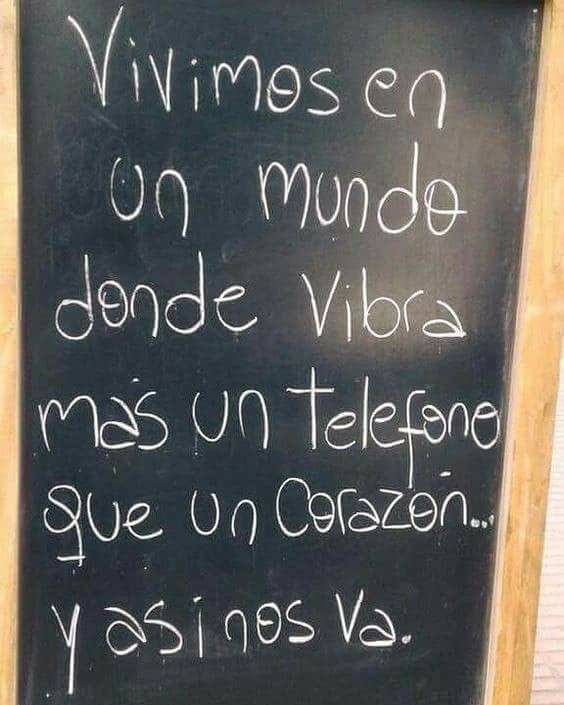 Vivimos en
un mundo
donde Vibra
más un telefono
que un Corazón...
y asi nos va.